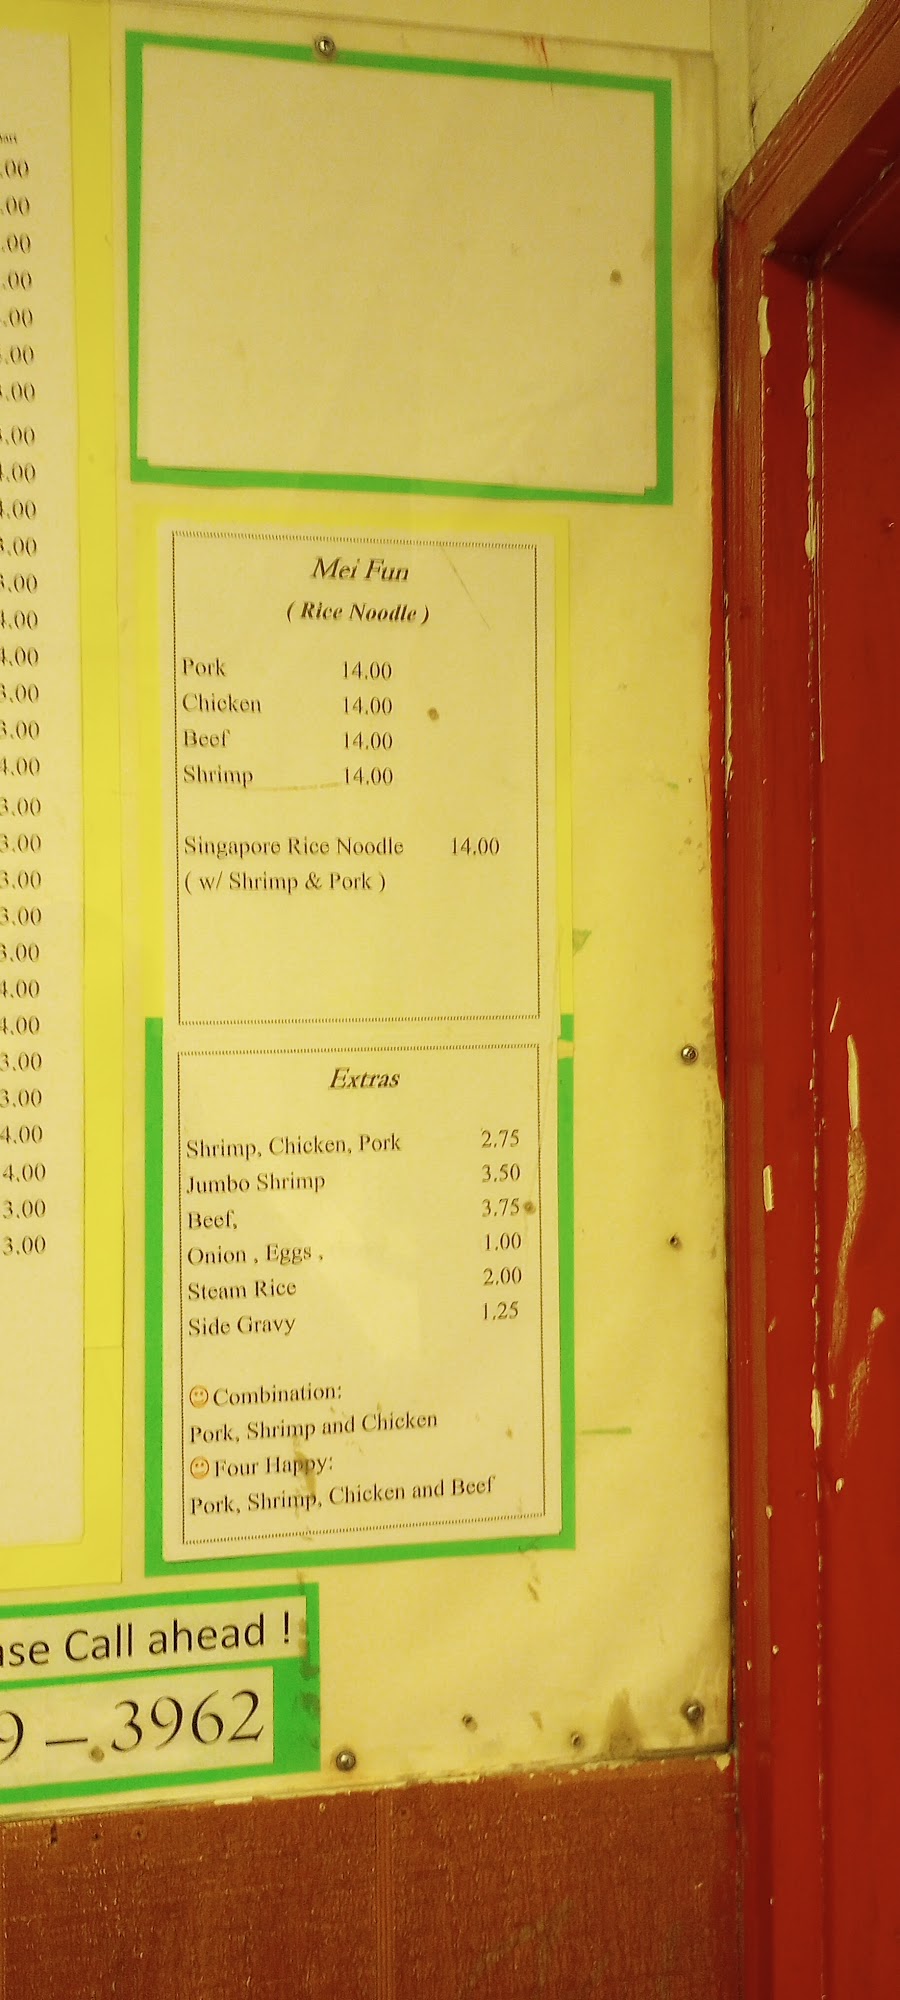 .00
.00
.00
.00
.00
.00
.00
.00
4.00
4.00
3.00
3.00
4.00
4.00
3.00
3.00
4.00
3.00
3.00
3.00
3.00
3.00
4.00
4.00
3.00
3.00
4.00
4.00
3.00
3.00
Mei Fun
( Rice Noodle )
Pork 14.00
Chicken 14.00
Beef 14.00
Shrimp 14.00
Singapore Rice Noodle 14.00
( w/ Shrimp & Pork )
Extras
Shrimp, Chicken, Pork 2.75
Jumbo Shrimp 3.50
Beef, 3.75
Onion , Eggs , 1.00
Steam Rice 2.00
Side Gravy 1.25
Combination:
Pork, Shrimp and Chicken
Four Happy:
Pork, Shrimp, Chicken and Beef
ase Call ahead !
9 – 3962